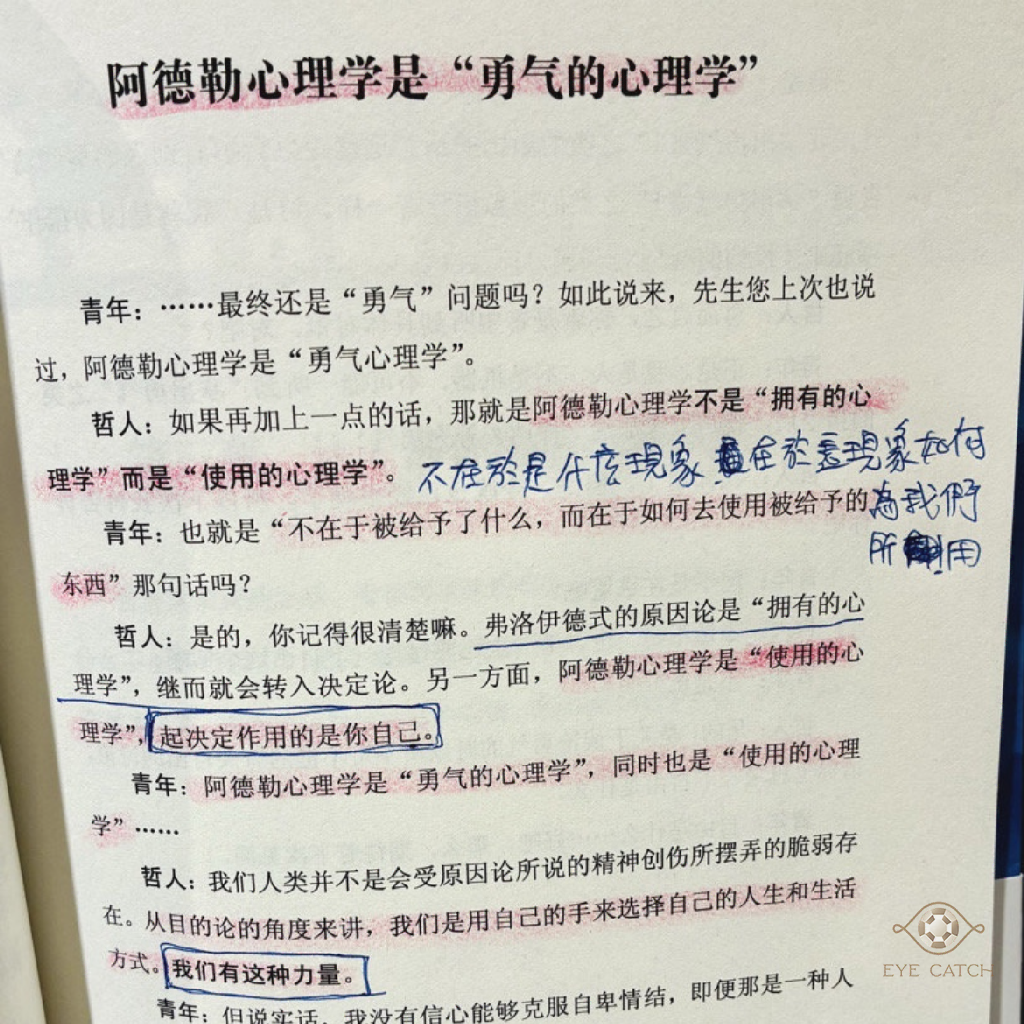 阿德勒心理学是“勇气的心理学”
青年：……最终还是“勇气”问题吗？如此说来，先生您上次也说
过，阿德勒心理学是“勇气心理学”。
哲人：如果再加上一点的话，那就是阿德勒心理学不是“拥有的心
理学”而是“使用的心理学”。
不在於是什麼現象 在於看現象如何
為我們
所 用
青年：也就是“不在于被给予了什么，而在于如何去使用被给予的
东西”那句话吗？
哲人：是的，你记得很清楚嘛。弗洛伊德式的原因论是“拥有的心
理学”，继而就会转入决定论。另一方面，阿德勒心理学是“使用的心
理学”，起决定作用的是你自己。
青年：阿德勒心理学是“勇气的心理学”，同时也是“使用的心理
学”……
哲人：我们人类并不是会受原因论所说的精神创伤所摆弄的脆弱存
在。从目的论的角度来讲，我们是用自己的手来选择自己的人生和生活
方式。我们有这种力量。
青年：但说实话，我没有信心能够克服自卑情结，即便那是一种人
EYE CATCH